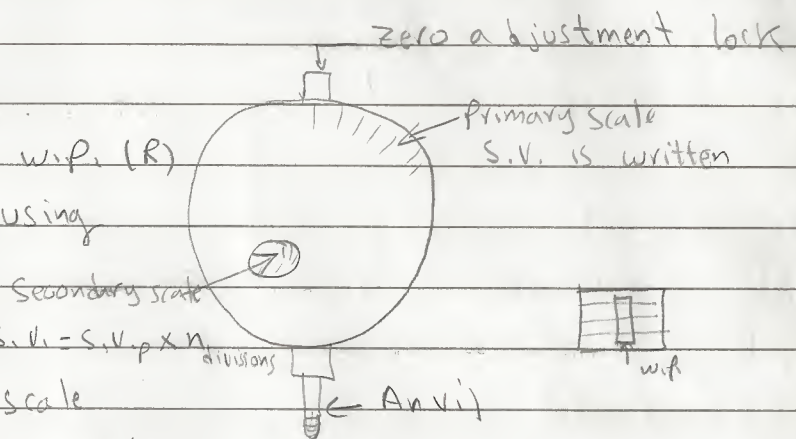 zero a bjustment lock
Primary scale
S.V. is written
w.p. (R)
using
Secondary scale
S.V. = S.V.p x n divisions
w.p.
scale
Anvil